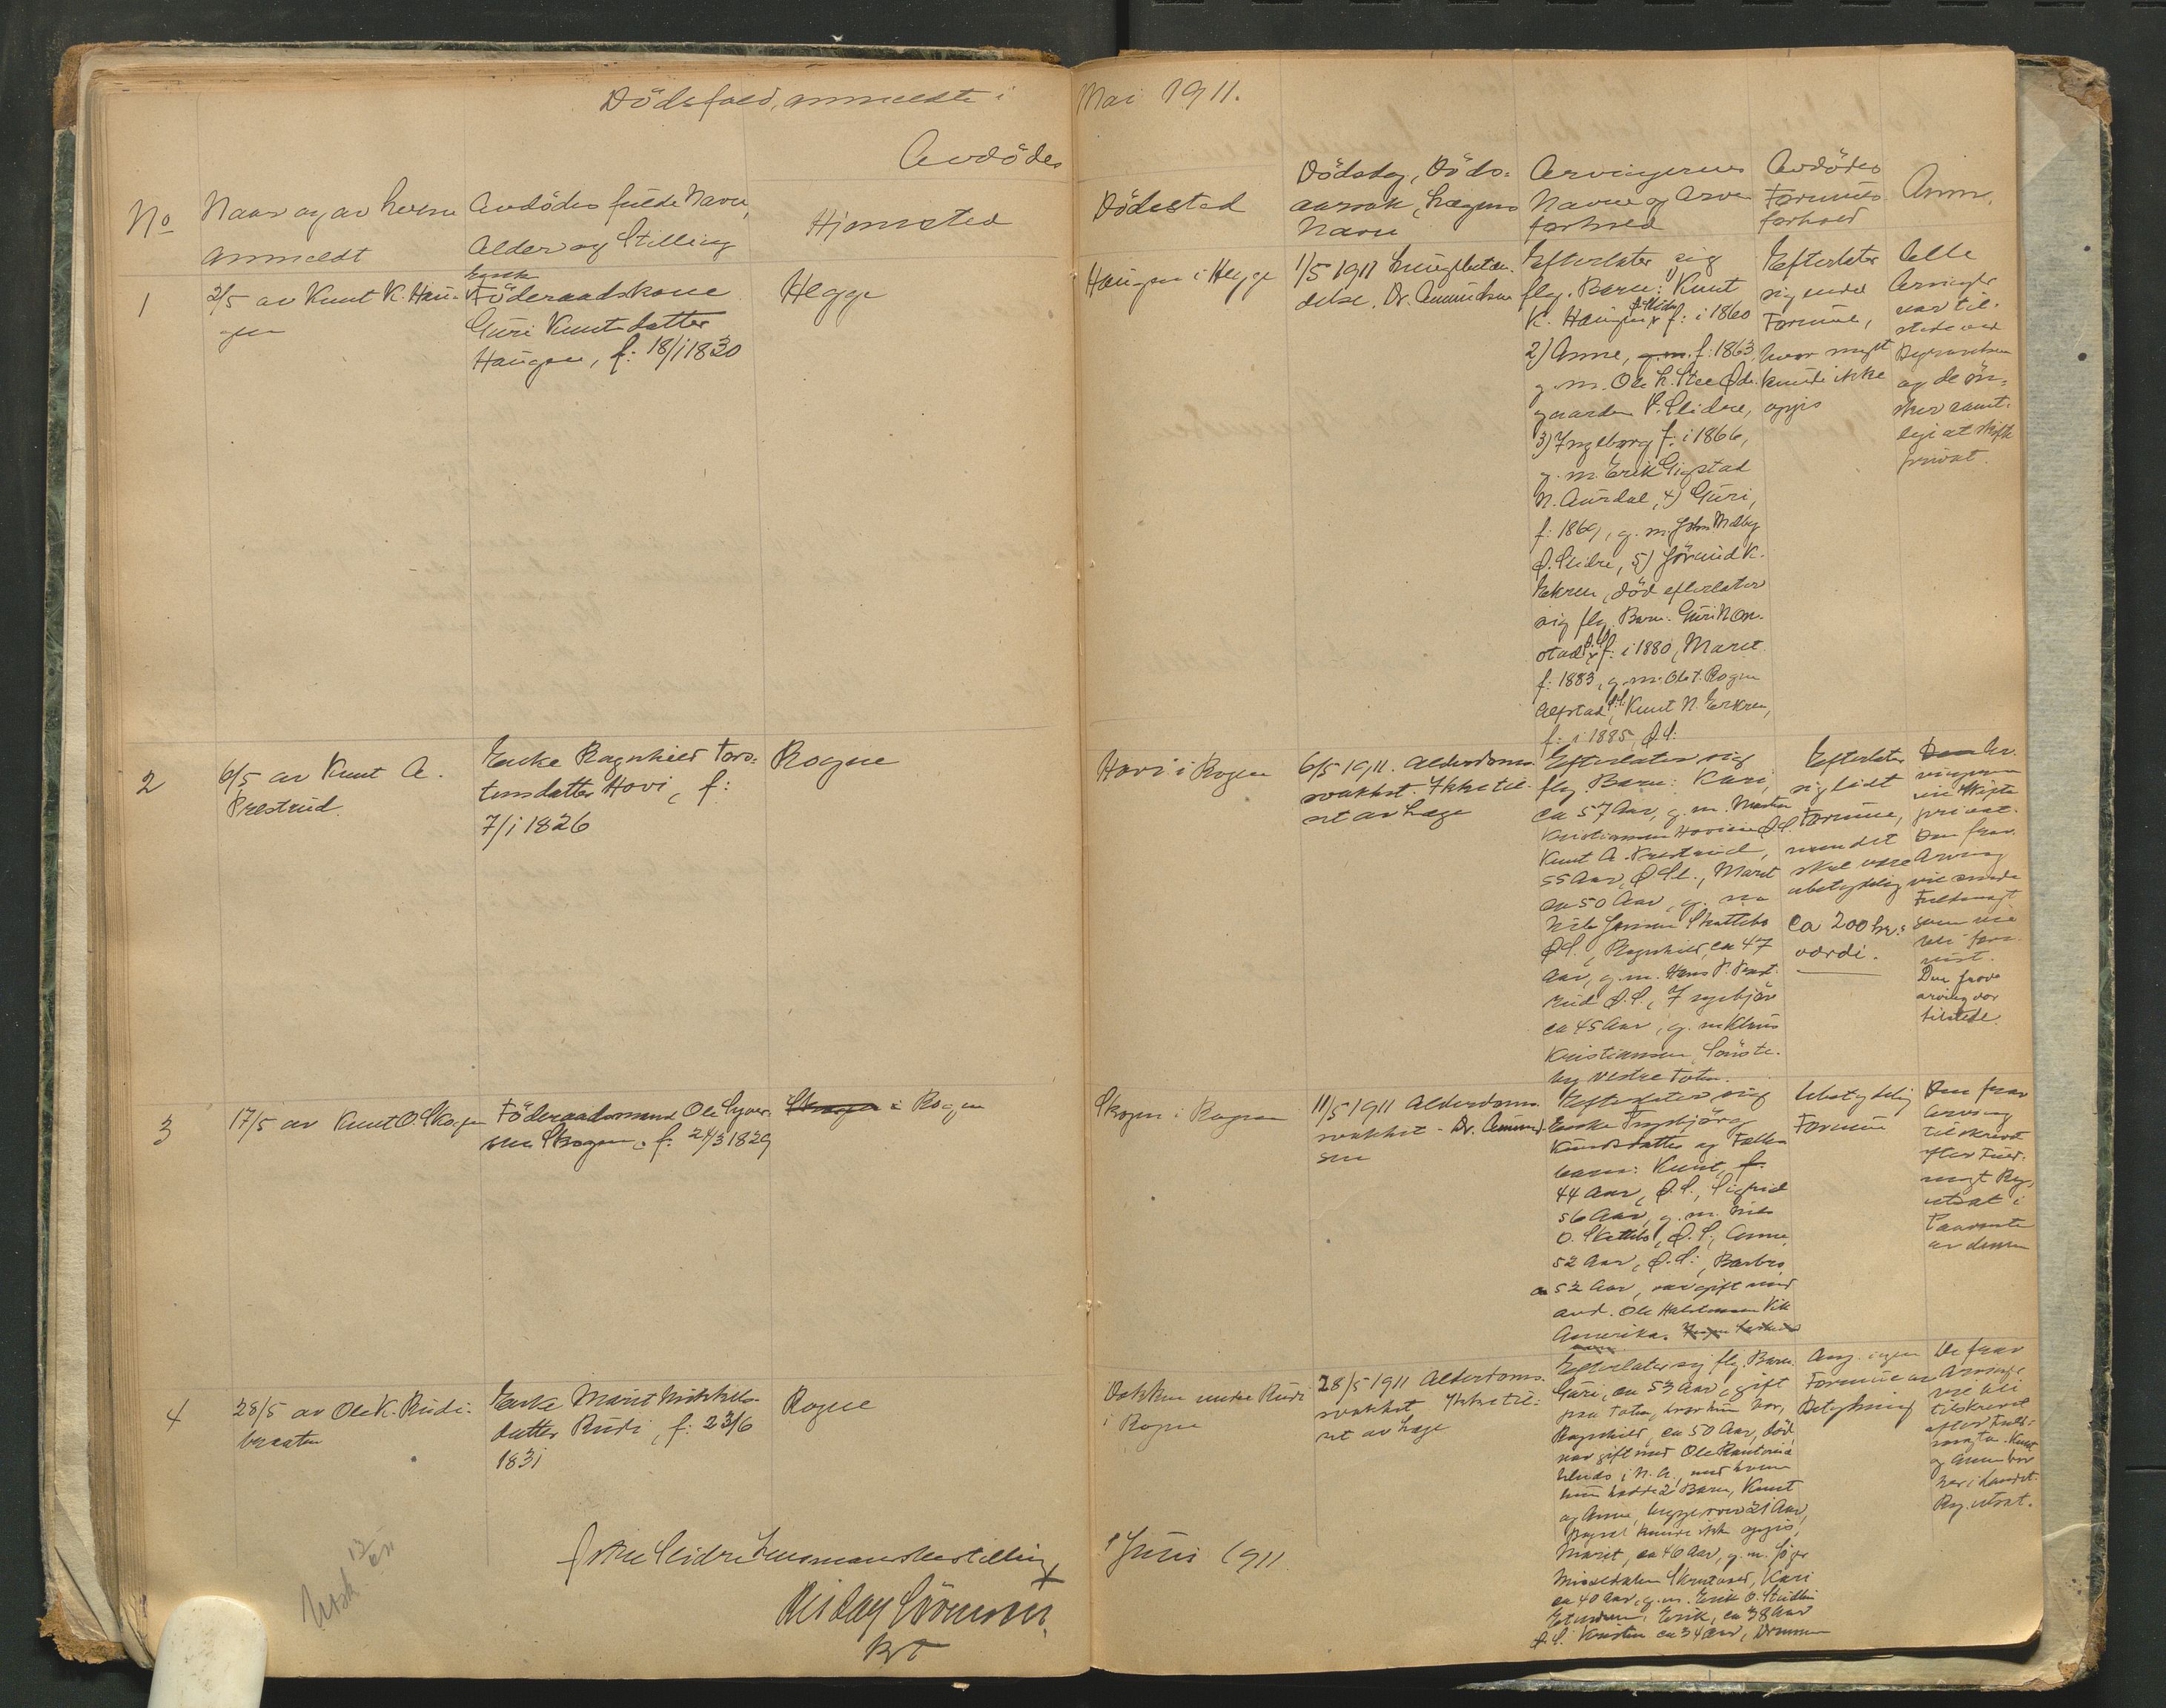 Dödsfald, anmeldte i Mai 1911.
Avdödes
No
Naar og av hvem
anmeldt
Avdödes fulde Navn,
Alder og Stilling
Hjemsted
Dödssted
Dödsdag, Döds-
aarsak, Lægens
Navn
Arvingernes
Navne og Arve
forhold
Avdödes
Formues
forhold
Anm.
1
2/5 av Knut K. Hau-
gen
Enke
Föderaadskone
Guri Knutsdatter
Haugen, f: 18/1 1830
Hegge
Haugen i Hegge
1/5 1911 Lungebetæn-
delse. Dr. Amundsen
Efterlater sig
flg. Barn: 1) Knut
K. Haugen, f: i 1860
2) Anne, g.m. f: 1863
g. m. Ole K. Øde-
gaarden V. Slidre,
3) Ingeborg f. i 1866,
g. m. Erik Gigstad
N. Aurdal, 4) Guri,
f: 1869, g. m. John Melby
Ø. Slidre, 5) Jörand K.
Ekren, död efterlater
sig flg. Barn: Guri
f: i 1880, Marit
f: 1883, g. m. Ole T. Rogne
Knut N. Ekren,
f: i 1885, Ø.S.
Efterlater
sig endel
Formue,
hvor meget
kunde ikke
opgis
Alle
Arvinger
var til-
stede ved
og de øn-
sker samt-
lige at skifte
privat.
2
6/5 av Knut A.
Prestrud.
Enke Ragnhild Tors-
tensdatter Hovi, f:
7/1 1826
Rogne
Hovi i Rogne
6/5 1911. Alderdoms-
svakhet. Ikke til-
set av Læge
Efterlater sig
flg. Barn: Kari,
ca 57 Aar, g. m. Martin
Kristiansen Ø.S.
Knut A. Prestrud,
55 Aar, Ø.Sl., Marit
ca 50 Aar, g. m
Nils Jensen Skattebo
Ø.S., Ragnhild, ca 47
Aar, g. m. Hans P. Prest-
rud Ø.S., Ingebjör
ca 45 Aar, g. m
Kristiansen,
by Vestre Toten.
Efterlater
sig lidt
Formue,
men det
skal være
ubetydelig
ca 200 kr.s
værdi.
Den Ar-
vingerne
vil skifte
privat.
Den frav.
Arving
vil sende
Fuldmagt
som vil
bli frem-
vist.
Den frav
arving var
tilstede.
3
17/5 av Knut O. Skogen
Föderaadsmand Ole Syver-
sen Skogen, f. 24/3 1829
Skogen i Rogne
Skogen i Rogne
11/5 1911 Alderdoms-
svakhet - Dr. Amund-
sen
Efterlater sig
Enke Ingebjörg
Knutsdatter og Fælles
barn: Knut, f.
44 Aar, Ø.S., Sigrid
56 Aar, g. m. Nils
O. Skattebo, Ø.S., Anne,
52 Aar, Ø.S., Barbro,
ca 52 Aar, var gift med
avd. Ole Vik
Amerika.
Ubetydelig
Formue
Den frav
Arving
tilskrevet
efter Fuld-
magt
utsat i
Paavente
av denne
4
28/5 av Ole K. Rudi-
braaten
Enke Marit Mikkels-
datter Rudi, f: 23/6
1831
Rogne
Bakken under Rudi
i Rogne
28/5 1911 Alderdoms-
svakhet Ikke til-
set av Læge
Efterlater sig flg. Barn
Guri, ca 53 Aar, gift
paa Toten, hvor hun bor,
Ragnhild, ca 50 Aar, död,
var gift med Ole
i N. A., med hvem
hun hadde 2 Barn, Knut
og Anne, begge over 21 Aar,
kunde ikke opgis,
Marit, ca 46 Aar, g. m.
Kari
ca 40 Aar, g. m. Erik O.
Erik, ca 38 Aar
Ø.S. Kristen ca 34 Aar,
Ang. ingen
Formue av
Betydning
De frav
Arvinge
vil bli
tilskrevet
efter Fuld-
magter. Knut
og Anne bor
her i Landet.
utsat.
Östre Slidre Lensmandsbestilling, 1 Juni 1911.